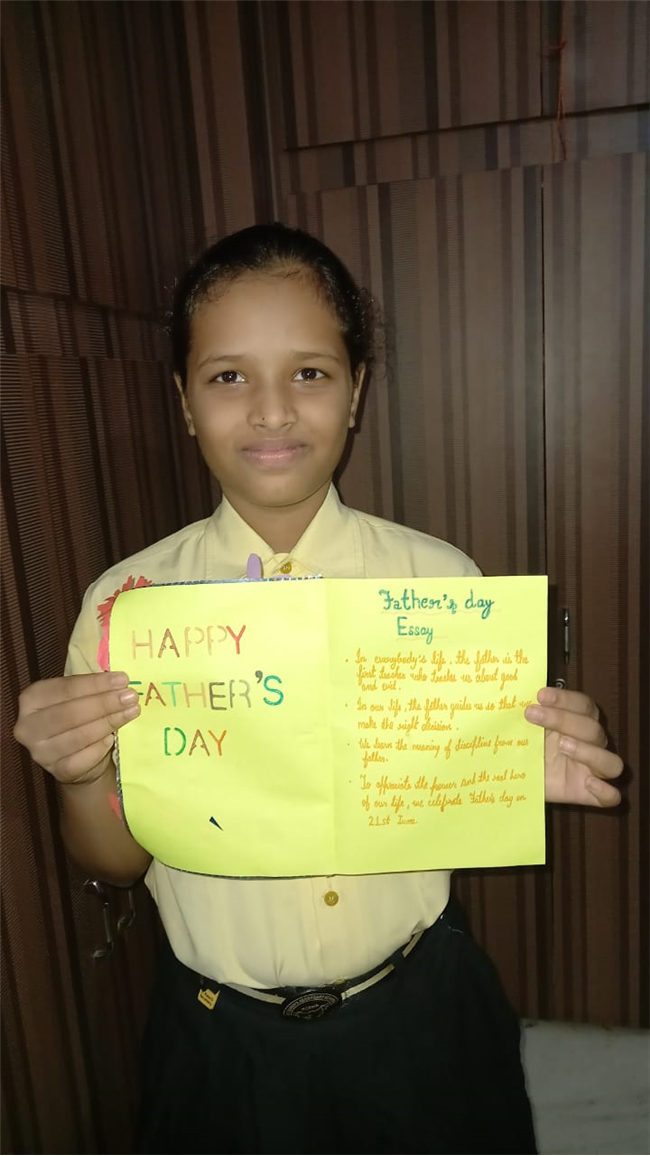 HAPPY
FATHER'S
DAY
Father's day
Essay
In everybody's life, the father is the
first teacher who teaches us about good
and evil.
In our life, the father guides us so that we
make the right decision.
We learn the meaning of discipline from our
father.
To appreciate the power and the real hero
of our life, we celebrate Father's day on
21st June.